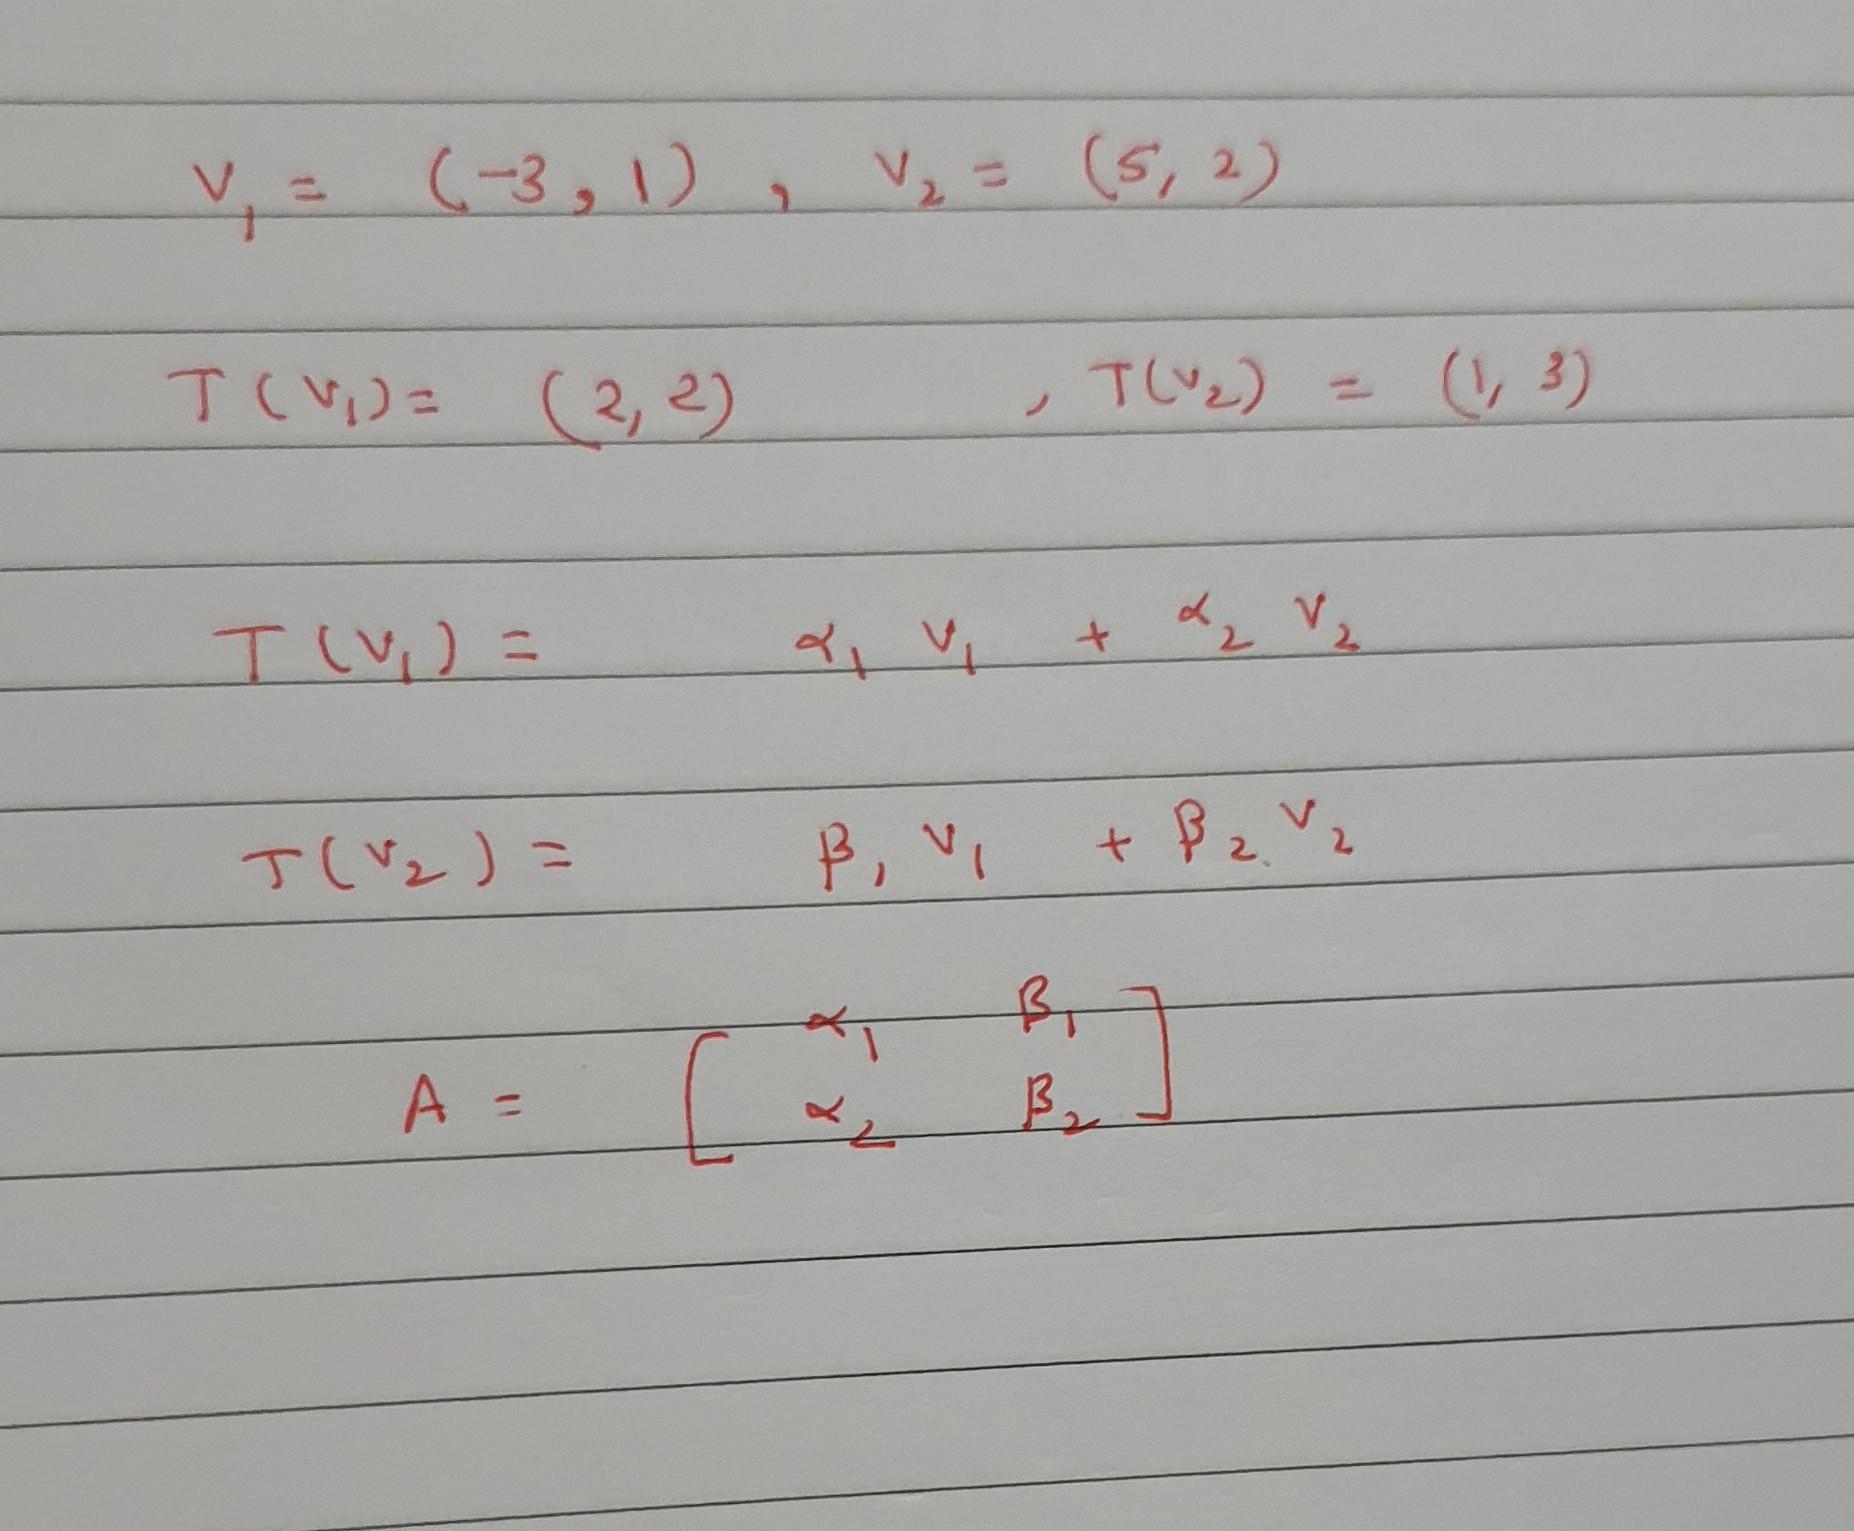 V₁ = (-3, 1) , V₂ = (5, 2)
T(V₁) = (2, 2) , T(V₂) = (1, 3)
T(V₁) = α₁ V₁ + α₂ V₂
T(V₂) = β₁ V₁ + β₂ V₂
A = [ α₁ β₁
α₂ β₂ ]